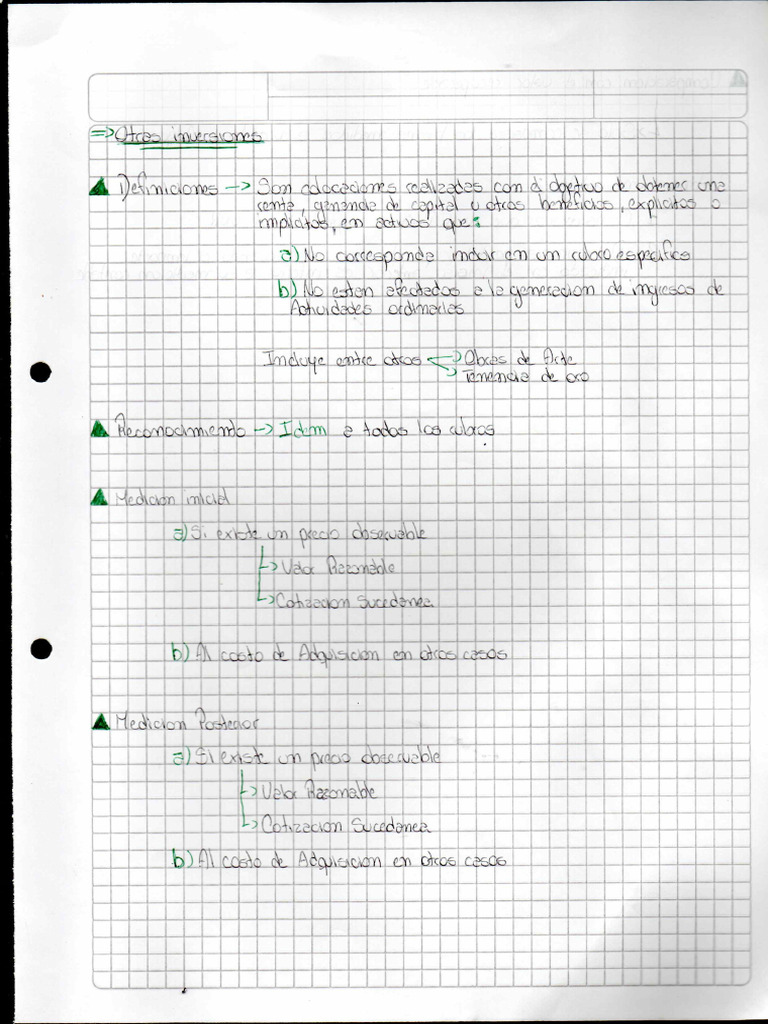 => Otras inversiones
Definiciones -> Son colocaciones realizadas con el objetivo de obtener una
renta, ganancia de capital u otros beneficios, explicitos o
implicitos, en activos que:
a) No corresponde incluir en un rubro especifico
b) No esten afectados a la generacion de ingresos de
Actividades ordinarias
Incluye entre otros -> Obras de Arte
-> Tenencia de oro
Reconocimiento -> Idem a todos los rubros
Medicion inicial
a) Si existe un precio observable
-> Valor Razonable
-> Cotizacion Sucedanea
b) Al costo de Adquisicion en otros casos
Medicion Posterior
a) Si existe un precio observable
-> Valor Razonable
-> Cotizacion Sucedanea
b) Al costo de Adquisicion en otros casos